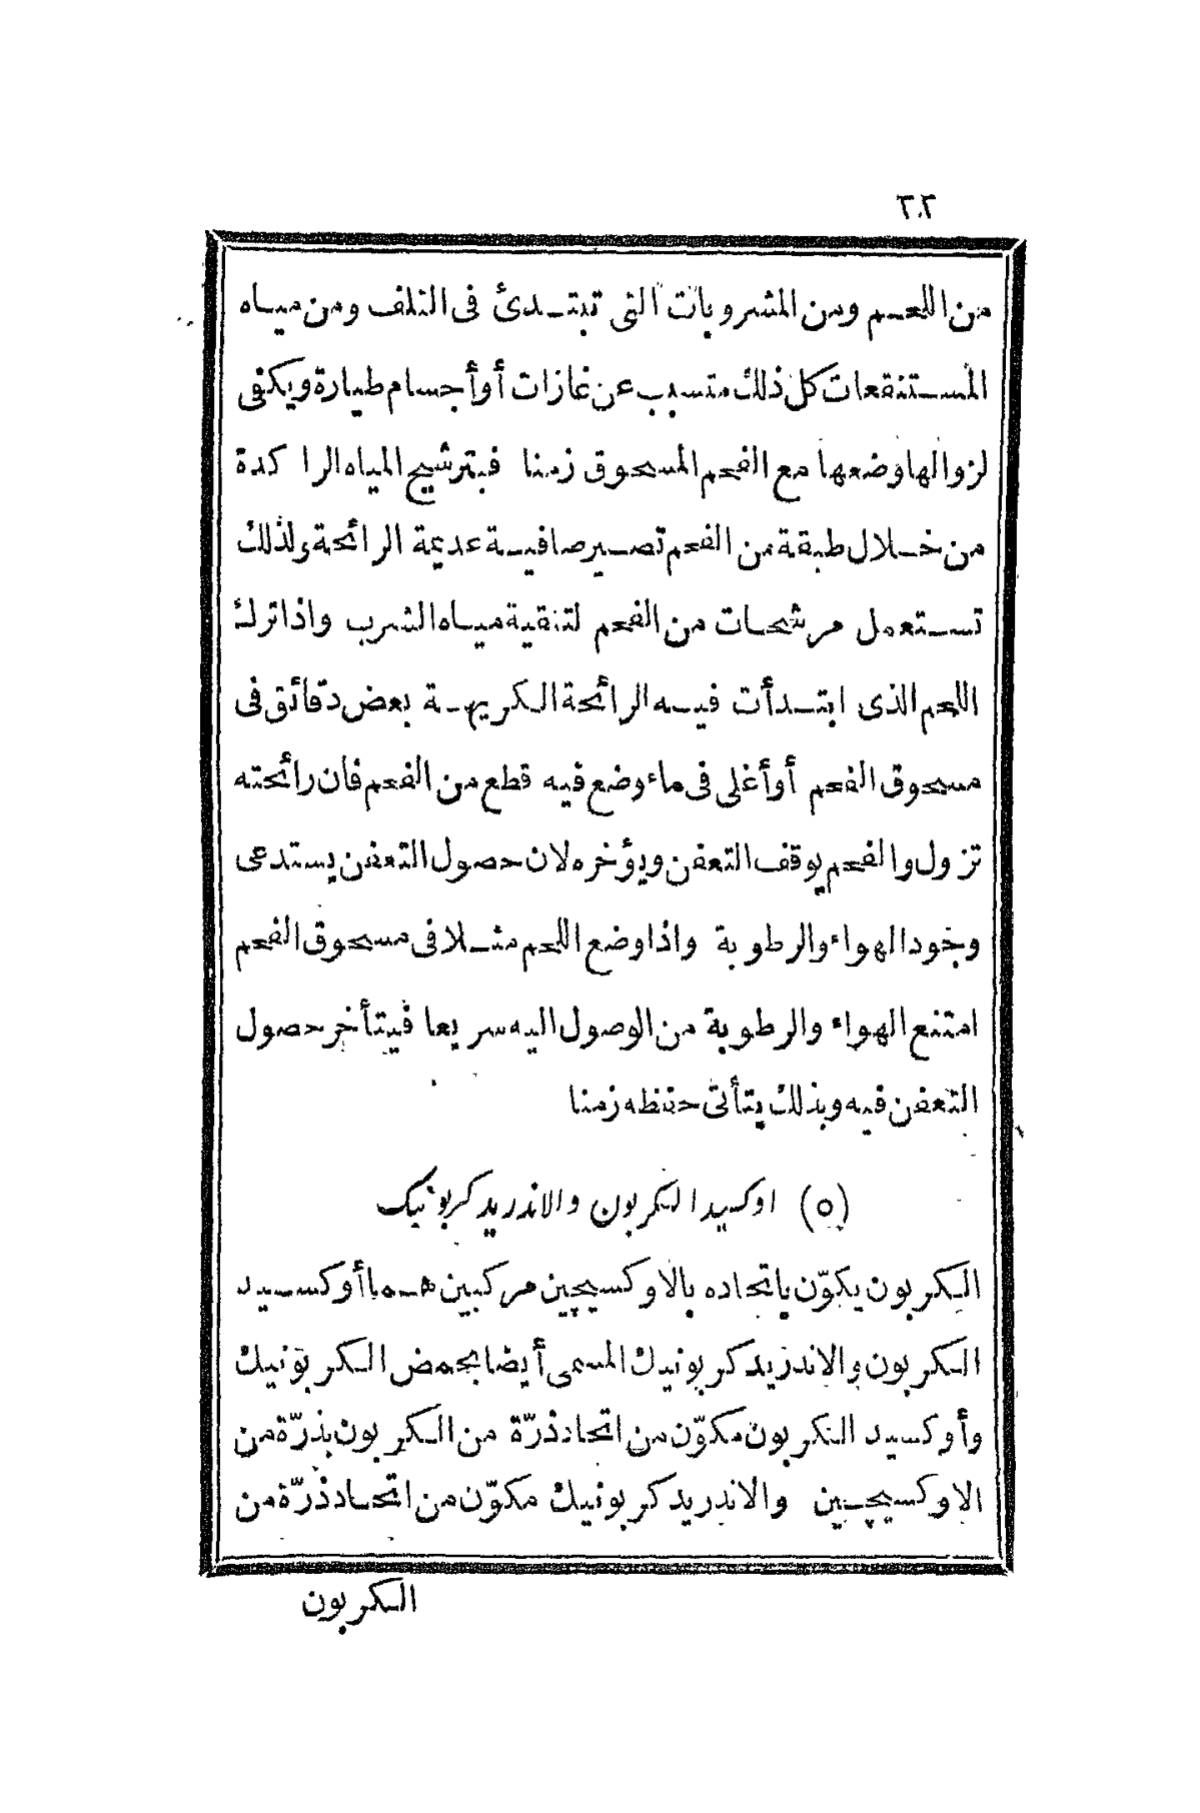 ٢٠٢
من اللحم ومن المشروبات التى تبتدئ فى التلف ومن مياه
المستنقعات كل ذلك متسبب عن غازات أو أجسام طيارة ويكفى
لزوالها وضعها مع الفحم المسحوق زمنا فبترشيح المياه الراكدة
من خلال طبقة من الفحم تصير صافية عديمة الرائحة ولذلك
تستعمل مرشحات من الفحم لتنقية مياه الشرب واذا ترك
اللحم الذى ابتدأت فيه الرائحة الكريهة بعض دقائق فى
مسحوق الفحم أو أغلى فى ماء وضع فيه قطع من الفحم فان رائحته
تزول والفحم يوقف التعفن ويؤخره لان حصول التعفن يستدعى
وجود الهواء والرطوبة واذا وضع اللحم مثلا فى مسحوق الفحم
امتنع الهواء والرطوبة من الوصول اليه سريعا فيتأخر حصول
التعفن فيه وبذلك يتأتى حفظه زمنا
(٥) اوكسيد الكربون والاندريد كربونيك
الكربون يكوّن باتحاده بالاوكسيجين مركبين هما أوكسيد
الكربون والاندريد كربونيك المسمى أيضا بحمض الكربونيك
وأوكسيد الكربون مكوّن من اتحاد ذرّة من الكربون بذرّة من
الاوكسيجين والاندريد كربونيك مكوّن من اتحاد ذرّة من
الكربون